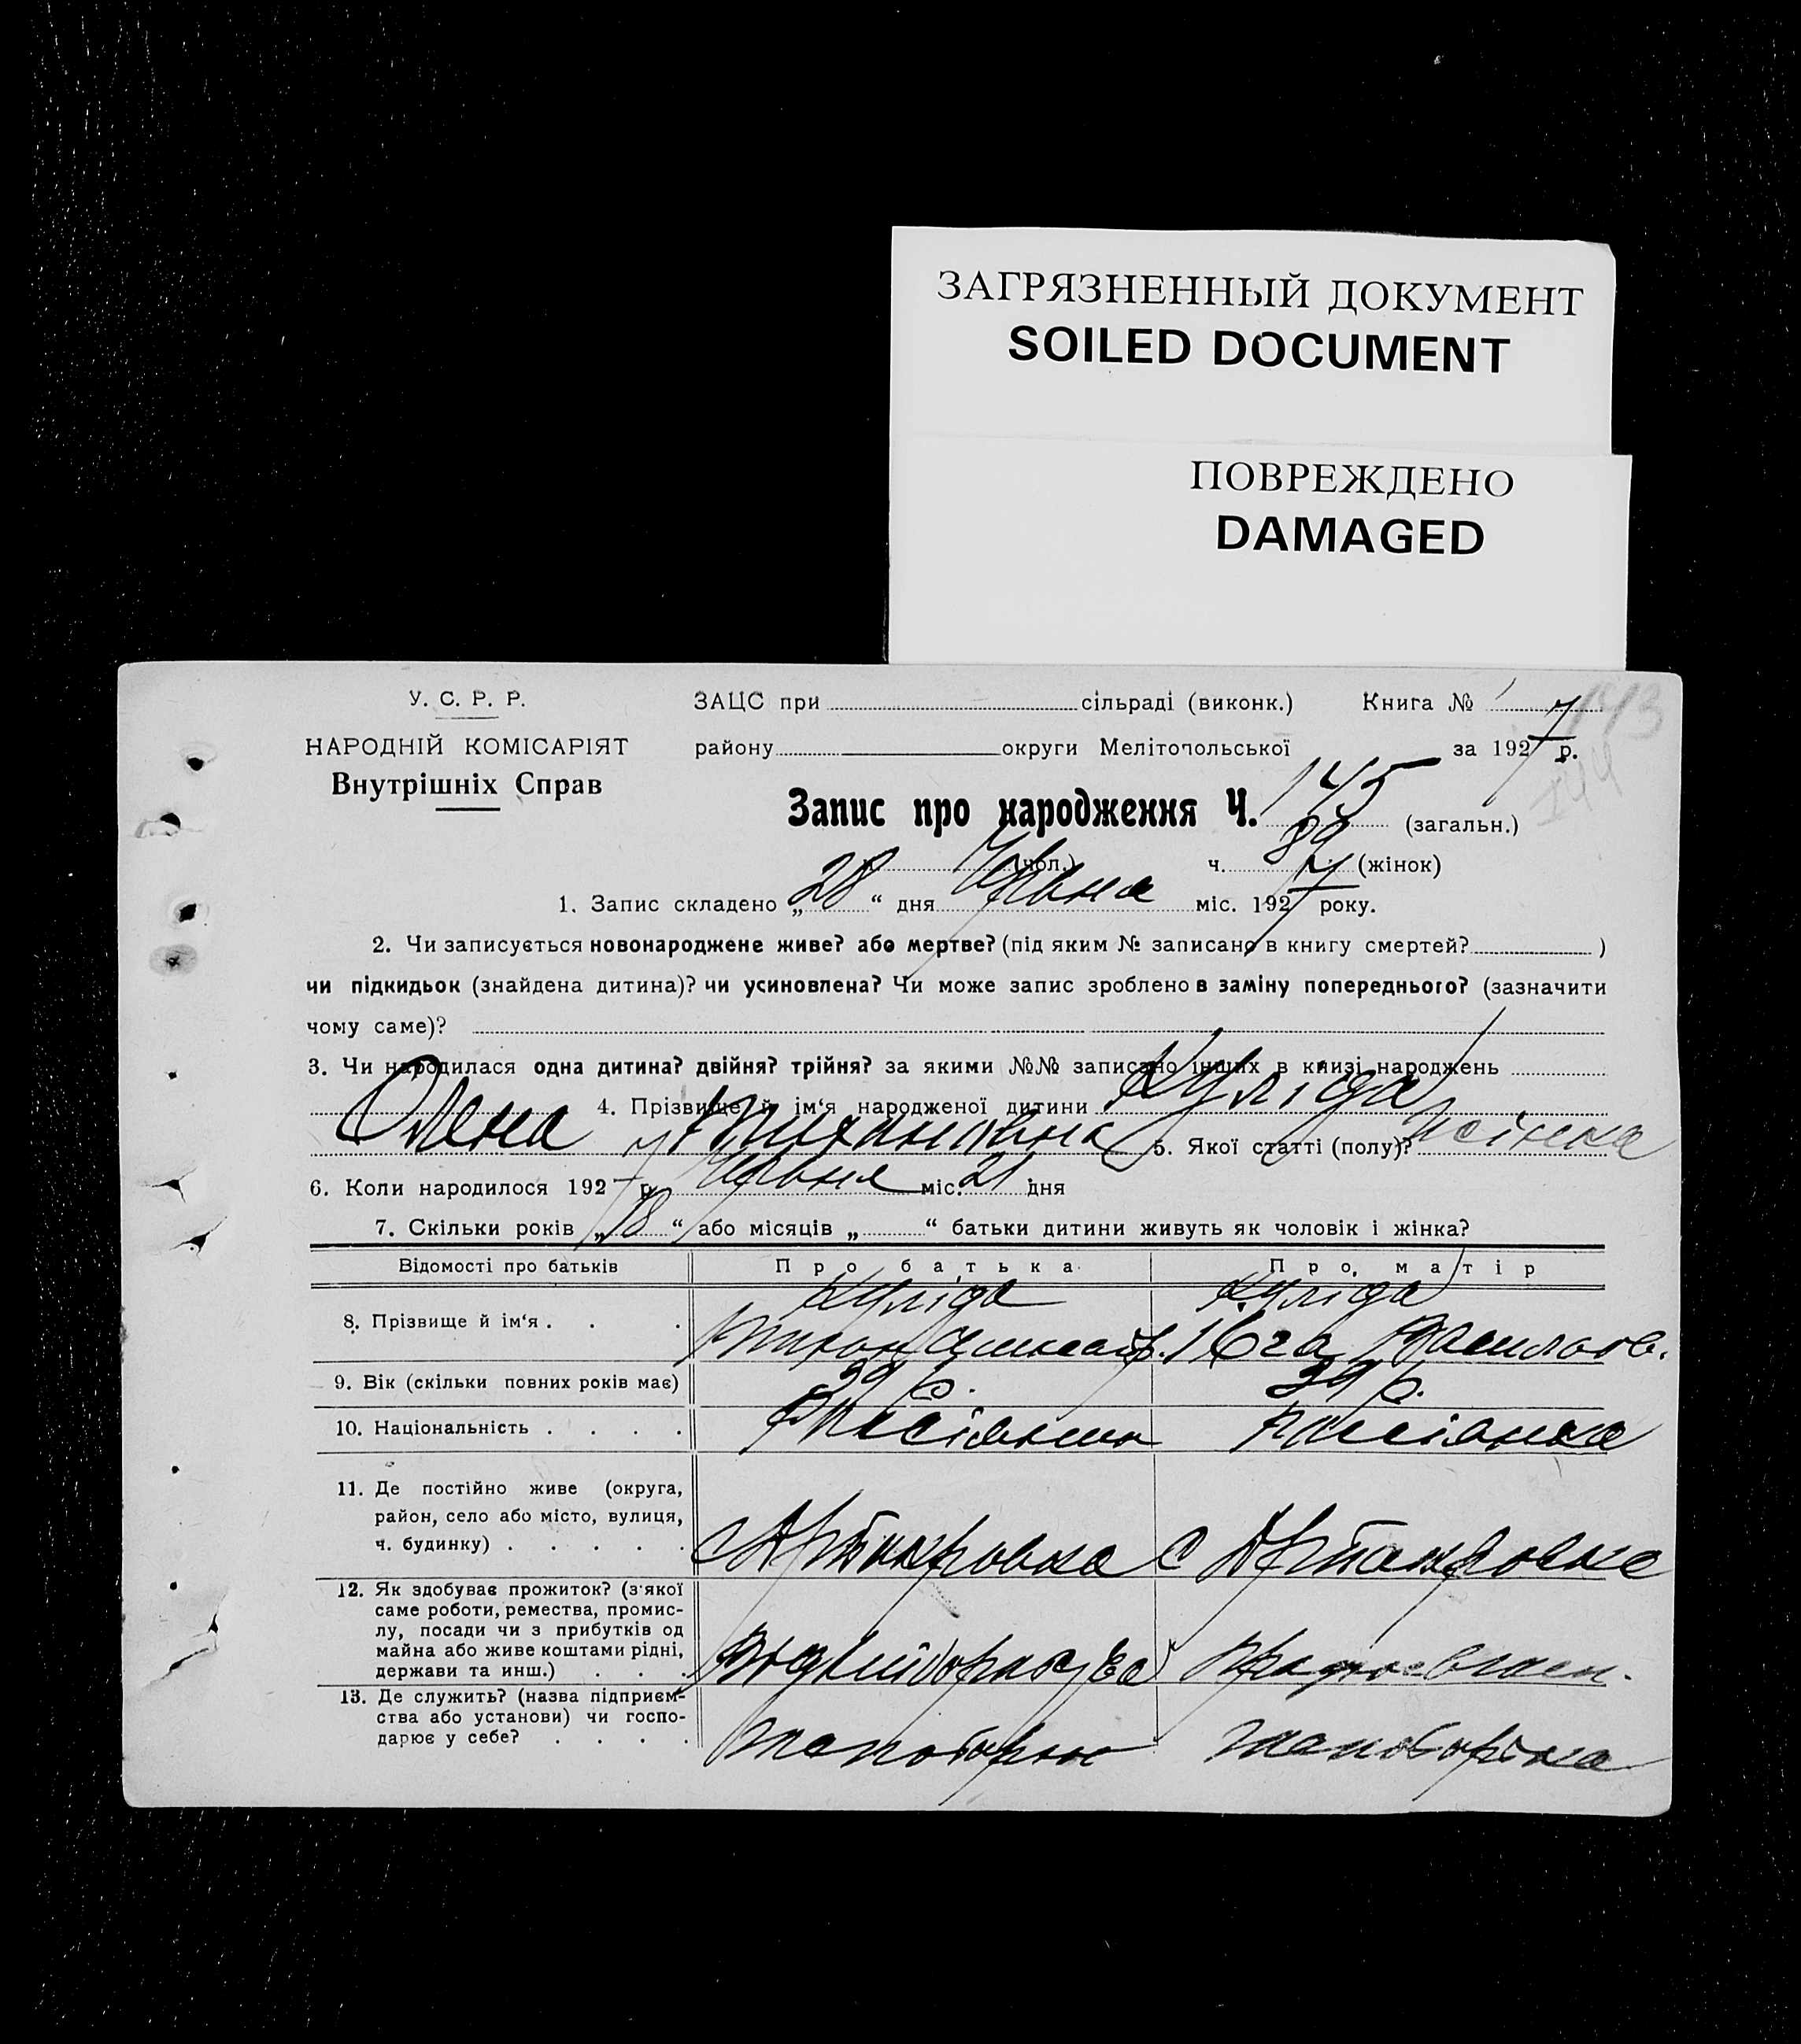 ЗАГРЯЗНЕННЫЙ ДОКУМЕНТ
SOILED DOCUMENT
ПОВРЕЖДЕНО
DAMAGED
У. С. Р. Р.
НАРОДНІЙ КОМІСАРІЯТ
Внутрішніх Справ
ЗАЦС при сільраді (виконк.) Книга №
району округи Мелітопольської за 1927 р.
Запис про народження Ч. 145 (загальн.)
(чол.) ч. 89 (жінок)
1. Запис складено „28“ дня Червня міс. 1927 року.
2. Чи записується новонароджене живе? або мертве? (під яким № записано в книгу смертей? )
чи підкидьок (знайдена дитина)? чи усиновлена? Чи може запис зроблено в заміну попереднього? (зазначити
чому саме)?
3. Чи народилася одна дитина? двійня? трійня? за якими №№ записано інших в книзі народжень
4. Прізвище й ім‘я народженої дитини Куліда
Олена Тихановна 5. Якої статті (полу)? жінка
6. Коли народилося 1927 р. Червня міс. 21 дня
7. Скільки років „18“ або місяців „ “ батьки дитини живуть як чоловік і жінка?
Відомості про батьків Про батька Про матір
8. Прізвище й ім‘я . . . Куліда Куліда
Тихон
9. Вік (скільки повних років має) 39 р. 39 р.
10. Національність . . . . Росіянин Росіянка
11. Де постійно живе (округа,
район, село або місто, вулиця,
ч. будинку) . . . . .
12. Як здобуває прожиток? (з'якої
саме роботи, ремества, промис-
лу, посади чи з прибутків од
майна або живе коштами рідні,
держави та инш.) . . .
13. Де служить? (назва підприєм-
ства або установи) чи госпо-
дарює у себе? . . . .